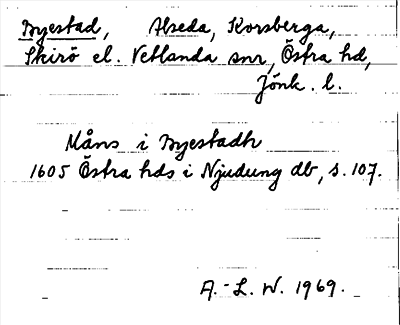 Byestad, Alseda, Korsberga,
Skirö el. Vetlanda snr, Östra hd,
Jönk. l.
Måns i Byestadh
1605 Östra hds i Njudung db, s. 107.
A.-L. W. 1969.